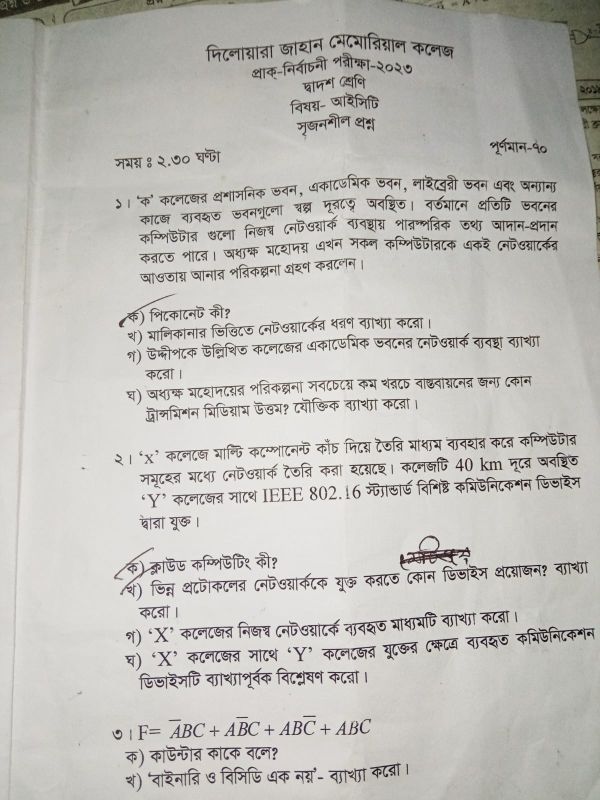 দিলোয়ারা জাহান মেমোরিয়াল কলেজ
প্রাক্-নির্বাচনী পরীক্ষা-২০২৩
দ্বাদশ শ্রেণি
বিষয়- আইসিটি
সৃজনশীল প্রশ্ন
সময় : ২.৩০ ঘন্টা
পূর্ণমান-৭০
১। ‘ক’ কলেজের প্রশাসনিক ভবন, একাডেমিক ভবন, লাইব্রেরী ভবন এবং অন্যান্য
কাজে ব্যবহৃত ভবনগুলো স্বল্প দূরত্বে অবস্থিত। বর্তমানে প্রতিটি ভবনের
কম্পিউটার গুলো নিজস্ব নেটওয়ার্ক ব্যবস্থায় পারস্পরিক তথ্য আদান-প্রদান
করতে পারে। অধ্যক্ষ মহোদয় এখন সকল কম্পিউটারকে একই নেটওয়ার্কের
আওতায় আনার পরিকল্পনা গ্রহণ করলেন।
ক) পিকোনেট কী?
খ) মালিকানার ভিত্তিতে নেটওয়ার্কের ধরণ ব্যাখ্যা করো।
গ) উদ্দীপকে উল্লিখিত কলেজের একাডেমিক ভবনের নেটওয়ার্ক ব্যবস্থা ব্যাখ্যা
করো।
ঘ) অধ্যক্ষ মহোদয়ের পরিকল্পনা সবচেয়ে কম খরচে বাস্তবায়নের জন্য কোন
ট্রান্সমিশন মিডিয়াম উত্তম? যৌক্তিক ব্যাখ্যা করো।
২। ‘X’ কলেজে মাল্টি কম্পোনেন্ট কাঁচ দিয়ে তৈরি মাধ্যম ব্যবহার করে কম্পিউটার
সমূহের মধ্যে নেটওয়ার্ক তৈরি করা হয়েছে। কলেজটি 40 km দূরে অবস্থিত
‘Y’ কলেজের সাথে IEEE 802.16 স্ট্যান্ডার্ড বিশিষ্ট কমিউনিকেশন ডিভাইস
দ্বারা যুক্ত।
ক) ক্লাউড কম্পিউটিং কী?
খ) ভিন্ন প্রটোকলের নেটওয়ার্ককে যুক্ত করতে কোন ডিভাইস প্রয়োজন? ব্যাখ্যা
করো।
গ) ‘X’ কলেজের নিজস্ব নেটওয়ার্কে ব্যবহৃত মাধ্যমটি ব্যাখ্যা করো।
ঘ) ‘X’ কলেজের সাথে ‘Y’ কলেজের যুক্তের ক্ষেত্রে ব্যবহৃত কমিউনিকেশন
ডিভাইসটি ব্যাখ্যাপূর্বক বিশ্লেষণ করো।
৩। F= A̅BC + AB̅C + ABC̅ + ABC
ক) কাউন্টার কাকে বলে?
খ) ‘বাইনারি ও বিসিডি এক নয়’- ব্যাখ্যা করো।